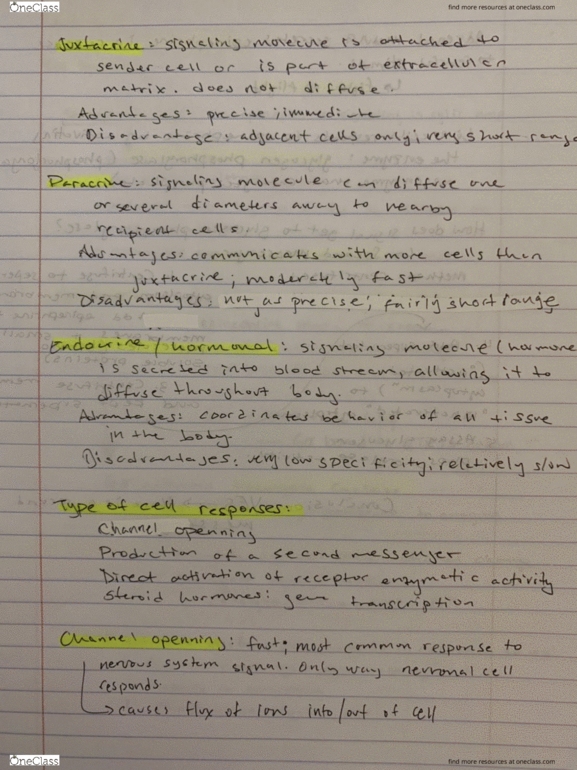 OneClass
find more resources at oneclass.com
Juxtacrine: signaling molecule is attached to
sender cell or is part of extracellular
matrix. does not diffuse.
Advantages: precise; immediate
Disadvantage: adjacent cells only; very short range
Paracrine: signaling molecule can diffuse one
or several diameters away to nearby
recipient cells
Advantages: communicates with more cells than
juxtacrine; moderately fast
Disadvantages: not as precise; fairly short range
Endocrine / hormonal: signaling molecule (hormone
is secreted into blood stream, allowing it to
diffuse throughout body.
Advantages: coordinates behavior of all tissue
in the body.
Disadvantages: very low specificity; relatively slow
Type of cell responses:
Channel openning
Production of a second messenger
Direct activation of receptor enzymatic activity
Steroid hormones: gene transcription
Channel openning: fast; most common response to
nervous system signal. Only way nevronal cell
responds.
→ causes flux of ions into/out of cell
OneClass
find more resources at oneclass.com